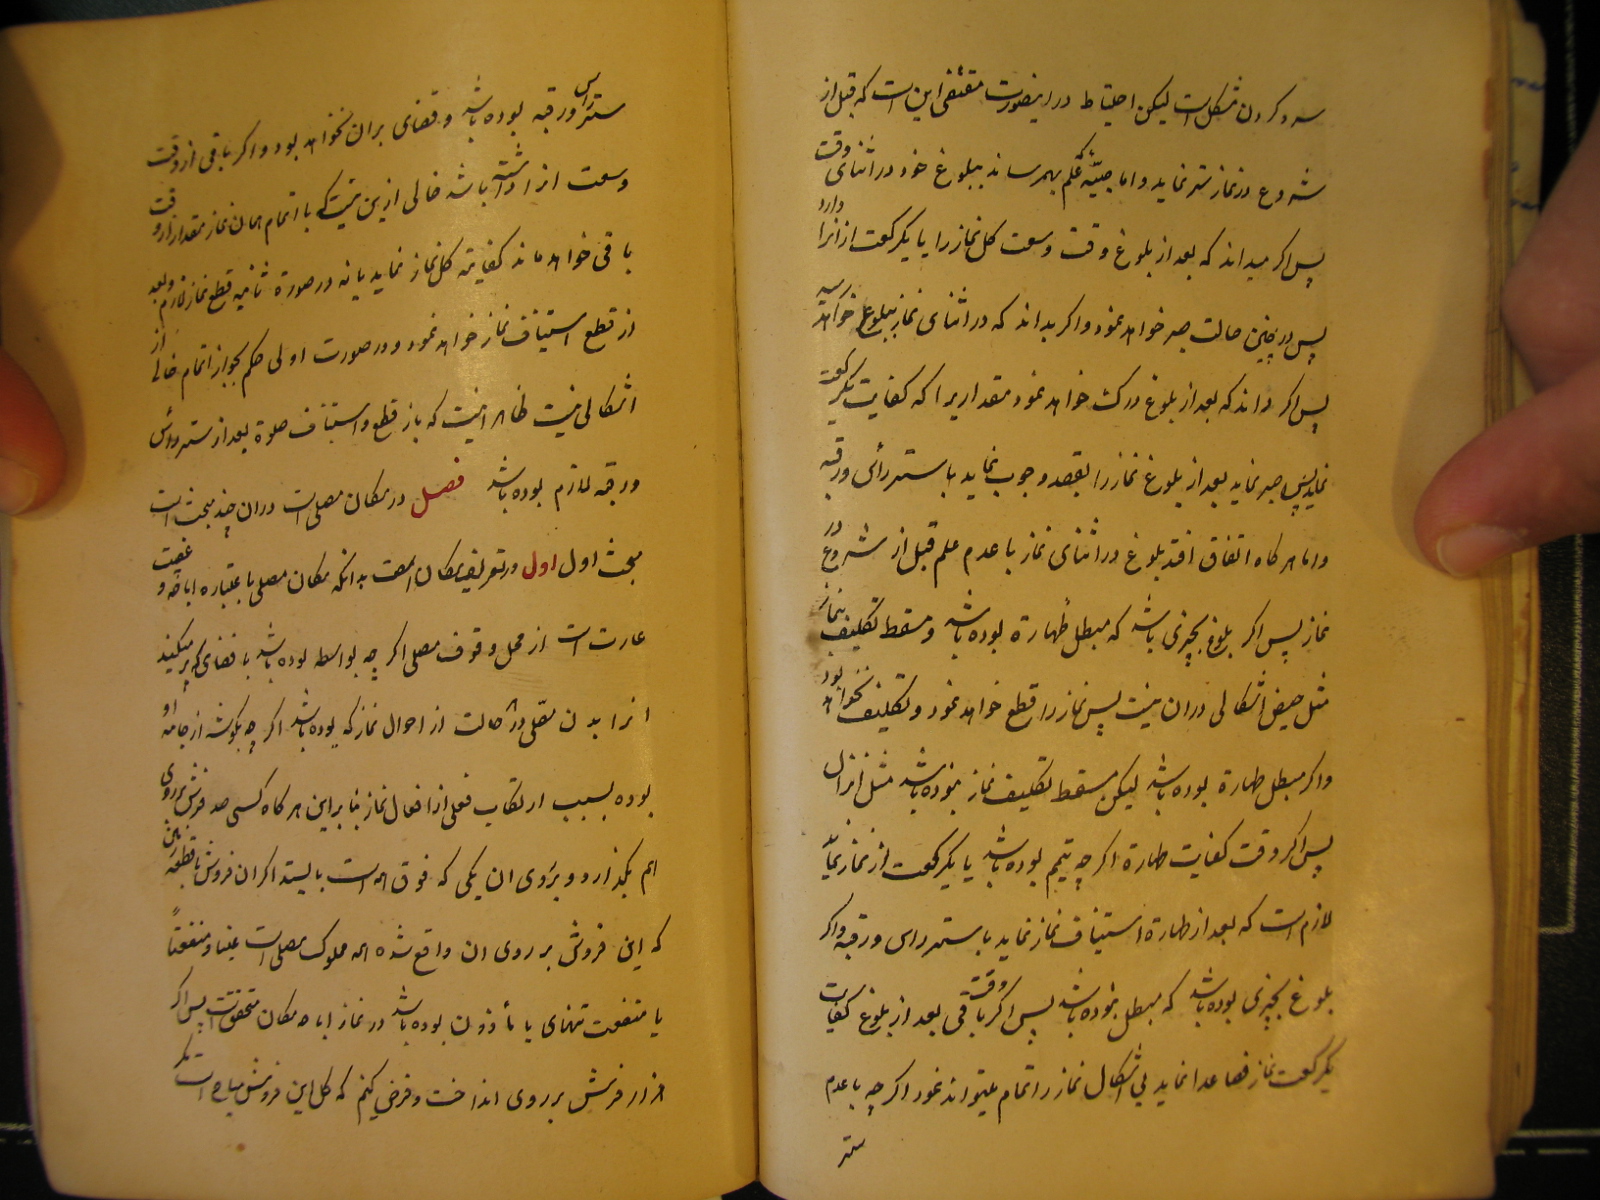 سهو کردن مشکل است لیکن احتیاط در اینصورت مقتضی این است که قبل از
شروع در نماز ستر نماید و اما صبیّه که علم بهمرساند ببلوغ خود در اثنای وقت
پس اکر میداند که بعد از بلوغ وقت وسعت کل نماز را یا یکرکعت از انرا دارد
پس در چنین حالت صبر خواهد نمود و اکر بداند که در اثنای نماز ببلوغ خواهد رسید
پس اکر داند که بعد از بلوغ درک خواهد نمود مقداریرا که کفایت یکرکعت
نماید پس صبر نماید بعد از بلوغ نماز را بقصد وجوب نماید با ستر رأس و رقبه
و اما هرکاه اتفاق افتد بلوغ در اثنای نماز با عدم علم قبل از شروع در
نماز پس اکر بلوغ بچیزی باشد که مبطل طهارة بوده باشد و مسقط تکلیف بنماز
مثل حیض اشکالی در ان نیست پس نماز را قطع خواهد نمود و تکلیف نخواهد بود
و اکر مبطل طهارة بوده باشد لیکن مسقط تکلیف نماز نبوده باشد مثل انزال
پس اکر وقت کفایت طهارة اکر چه تیمم بوده باشد یا یکرکعت از نماز نماید
لازم است که بعد از طهارة استیناف نماز نماید با ستر راس و رقبه و اکر
بلوغ بچیزی بوده باشد که مبطل نبوده باشد پس اکر وقت باقی بعد از بلوغ کفایت
یکرکعت نماز فصاعدا نماید بی اشکال نماز را اتمام نمیتواند نمود اکر چه با عدم
ستر
ستر راس و رقبه بوده باشد و قضای بران نخواهد بود و اکر باقی از وقت
وسعت انرا داشته باشد خالی ازین نیست که با اتمام همان نماز مقدار از وقت
باقی خواهد ماند کفایت کل نماز نماید یا نه در صورة ثانیه قطع نماز لازم و بعد
از قطع استیناف نماز خواهد نمود و در صورت اولی حکم بجواز اتمام خالی از
اشکالی نیست ظاهر اینست که باز قطع و استیناف صلوة بعد از ستر رأس
و رقبه لازم بوده باشد فصل در مکان مصلی است در ان چند مبحث است
مبحث اول اول در تعریف مکان است بدانکه مکان مصلی باعتبار اباحه و غصبت
عبارت است از محل وقوف مصلی اکر چه بواسطه بوده باشد با فضای که پر میکنید
انرا بدن مصلی در حالت از احوال نماز که بوده باشد اکر چه بکوشه از جامه او
بوده بسبب ارتکاب فعلی از افعال نماز بنابراین هرکاه کسی صد فرش بر روی
هم بکذارد و بر روی ان یکی که فوق همه است بایستد اکر ان فروش با قطعه زمین
که این فروش بر روی ان واقع شده همه مملوک مصلی است عینا و منفعتاً
یا منفعت تنهای یا مأذون بوده باشد در نماز اباحه مکان متحقق است پس اکر
هزار فرش بر روی انداخت و فرض کنیم که کل این فروش مباح است مکر